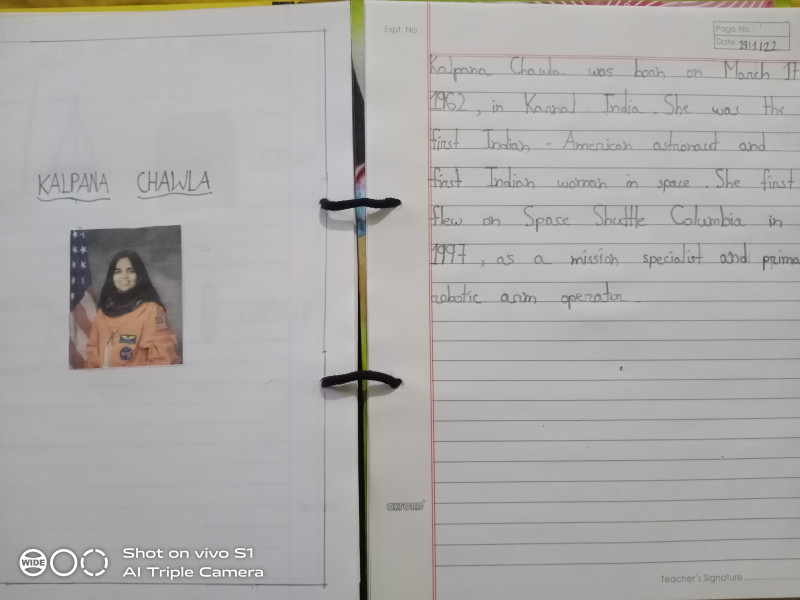 KALPANA CHAWLA
Expt. No.
Page No.:
Date: 19/1/22
Kalpana Chawla was born on March 17
1962, in Karnal India. She was the
first Indian - American astronaut and
first Indian woman in space. She first
flew on Space Shuttle Columbia in
1997, as a mission specialist and prima
robotic arm operator
OXFORD
Teacher's Signature
WIDE
Shot on vivo S1
AI Triple Camera